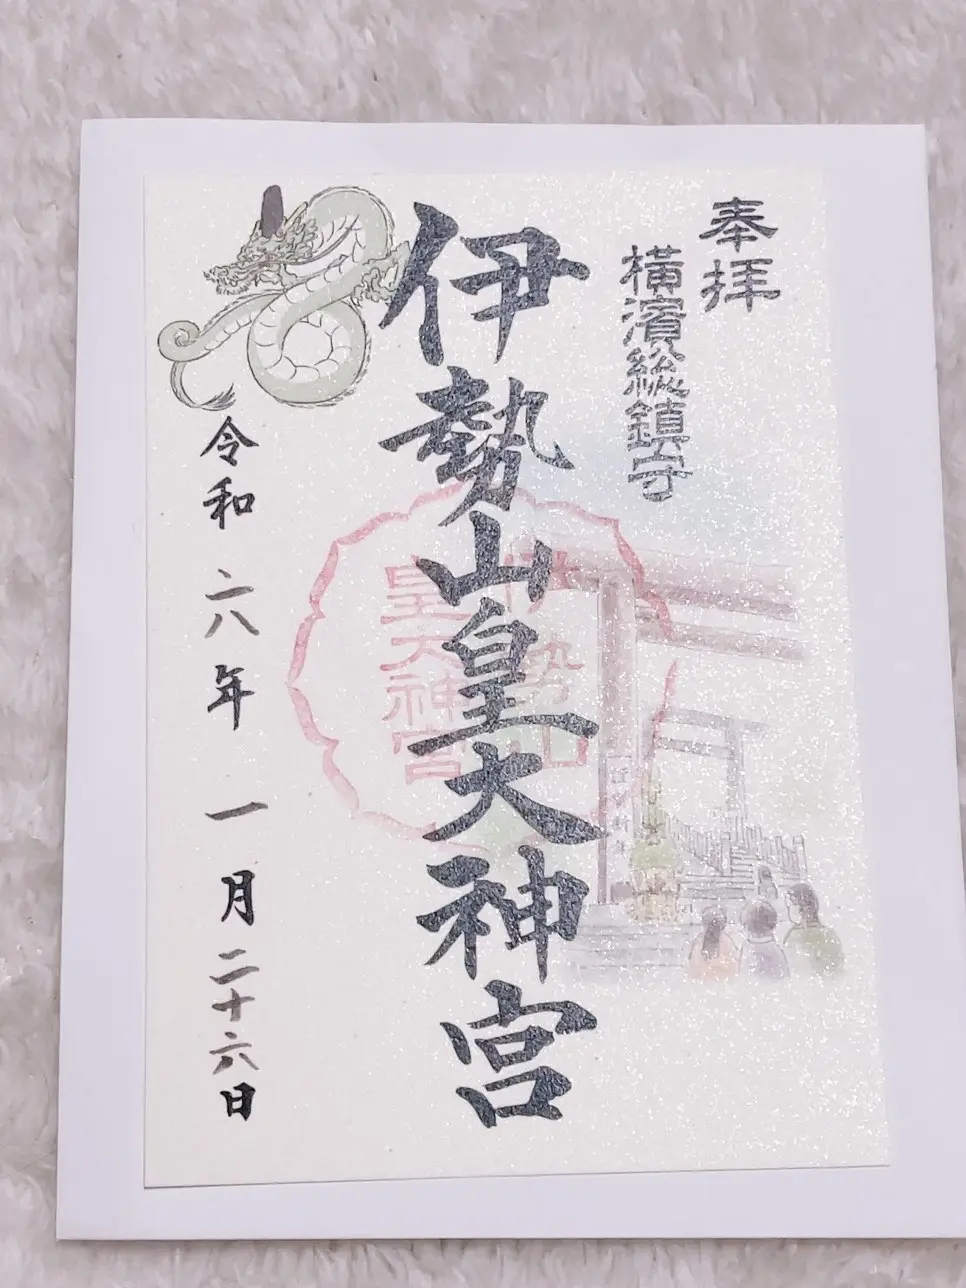 奉拝
横濱総鎮守
伊勢山皇大神宮
伊勢山
皇大神宮
令和六年一月二十六日